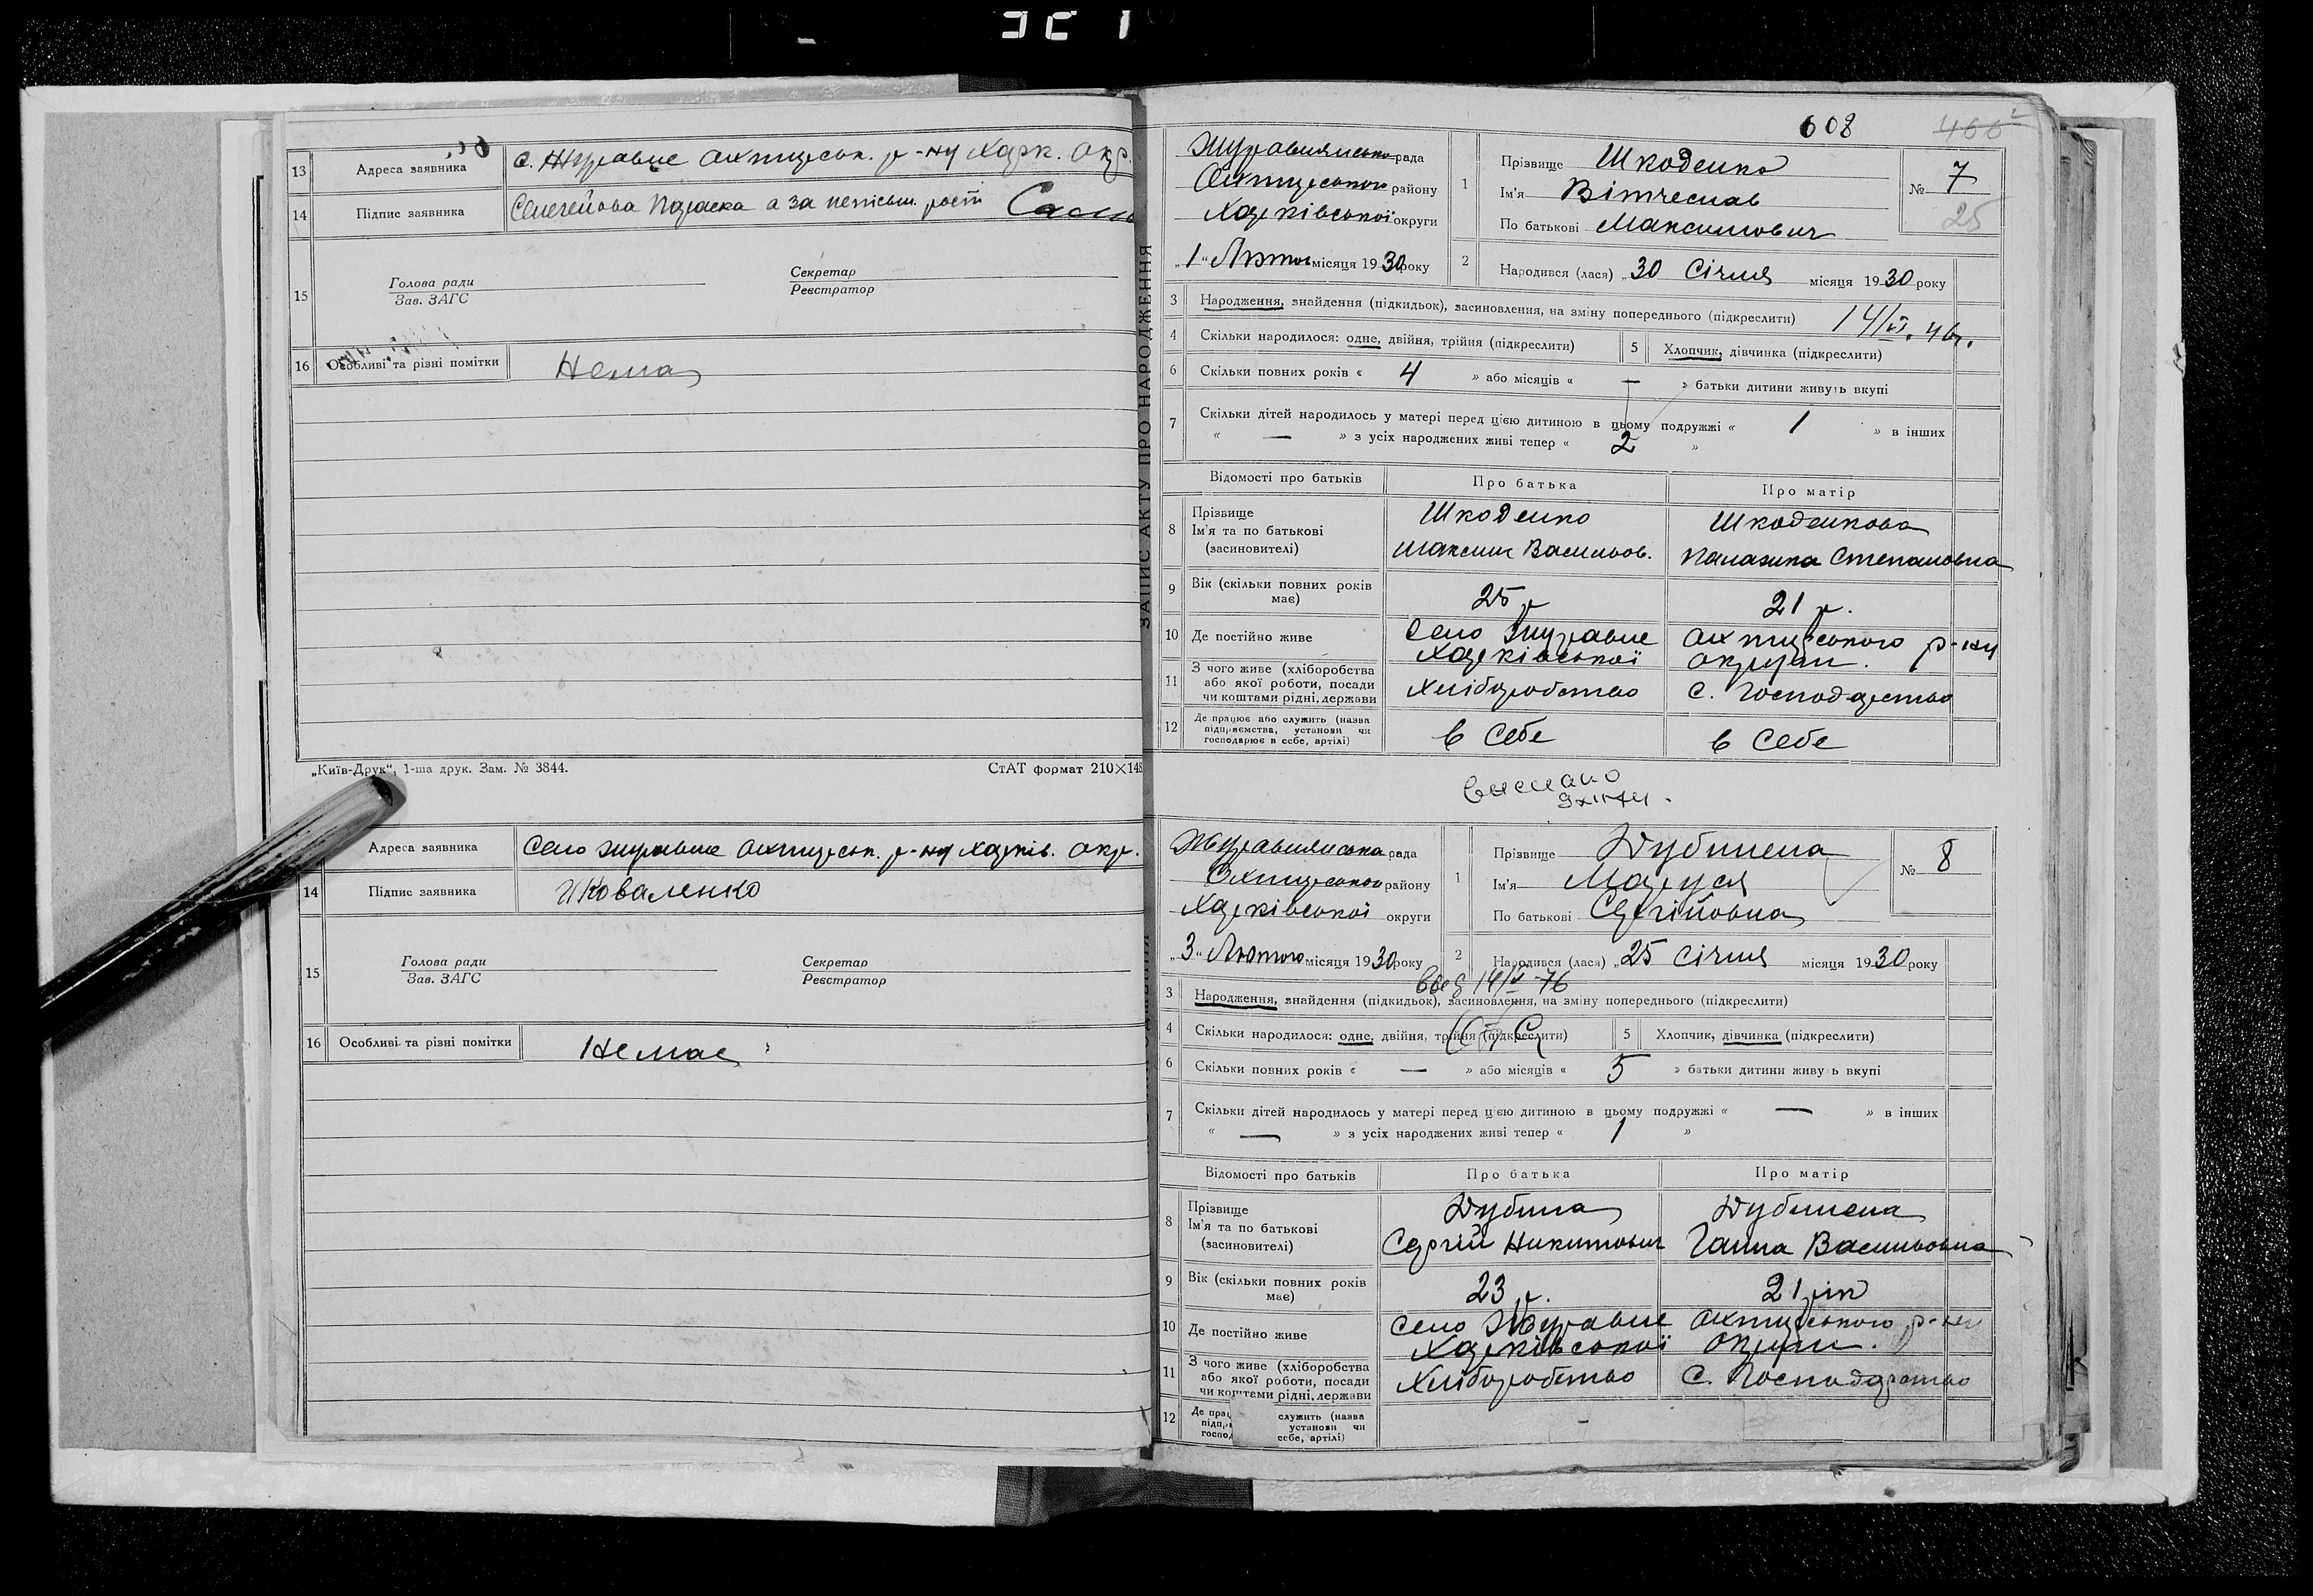 13 Адреса заявника с. Журавне Охтирськ. р-ну Харк. Окр.
14 Підпис заявника
15 Голова ради Секретар
Зав. ЗАГС Реєстратор
16 Особливі та різні помітки Нема
„Київ-Друк“, 1-ша друк. Зам. № 3844. СтАТ формат 210×148
Адреса заявника Село Журавне Охтирськ. р-ну Харків. Окр.
14 Підпис заявника Коваленко
15 Голова ради Секретар
Зав. ЗАГС Реєстратор
16 Особливі та різні помітки Немає
ЗАПИС АКТУ ПРО НАРОДЖЕННЯ
608 466
Журавнянська рада
Охтирського району
Харківської округи
„1“ Лютого місяця 1930 року
1 Прізвище Шкоденко
Ім'я Вітчеслав
По батькові Максимович
№ 7
25
2 Народився (лася) „30 Січня місяця 1930 року
3 Народження, знайдення (підкидьок), засиновлення, на зміну попереднього (підкреслити)
4 Скільки народилося: одне, двійня, трійня (підкреслити) 5 Хлопчик, дівчинка (підкреслити)
6 Скільки повних років « 4 » або місяців « — » батьки дитини живуть вкупі
7 Скільки дітей народилось у матері перед цією дитиною в цьому подружжі « 1 » в інших
« — » з усіх народжених живі тепер « 2 »
Відомості про батьків Про батька Про матір
8 Прізвище Шкоденко Шкоденкова
Ім'я та по батькові
(засиновителі) Максим Васильов. Палажка Степановна
9 Вік (скільки повних років має) 25 р 21 р.
10 Де постійно живе Село Журавне Охтирського р-ну
Харківської округи.
11 З чого живе (хліборобства
або якої роботи, посади
чи коштами рідні, держави Хліборобство С. Господарство
12 Де працює або служить (назва
підприємства, установи чи
господарює в себе, артілі) в Себе в Себе
Журавнянська рада
Охтирського району
Харківської округи
„3“ Лютого місяця 1930 року
1 Прізвище Дубинена
Ім'я Маруся
По батькові Сергійовна
№ 8
2 Народився (лася) „25 Січня місяця 1930 року
3 Народження, знайдення (підкидьок), засиновлення, на зміну попереднього (підкреслити)
4 Скільки народилося: одне, двійня, трійня (підкреслити) 5 Хлопчик, дівчинка (підкреслити)
6 Скільки повних років « — » або місяців « 5 » батьки дитини живуть вкупі
7 Скільки дітей народилось у матері перед цією дитиною в цьому подружжі « — » в інших
« — » з усіх народжених живі тепер « 1 »
Відомості про батьків Про батька Про матір
8 Прізвище Дубина Дубинена
Ім'я та по батькові
(засиновителі) Сергій Никитович Ганна Васильовна
9 Вік (скільки повних років має) 23 р. 21 рік
10 Де постійно живе Село Журавне Охтирського р-ну
Харківської округи.
11 З чого живе (хліборобства
або якої роботи, посади
чи коштами рідні, держави Хліборобство С. Господарство
12 Де служить (назва
установи чи
себе, артілі)